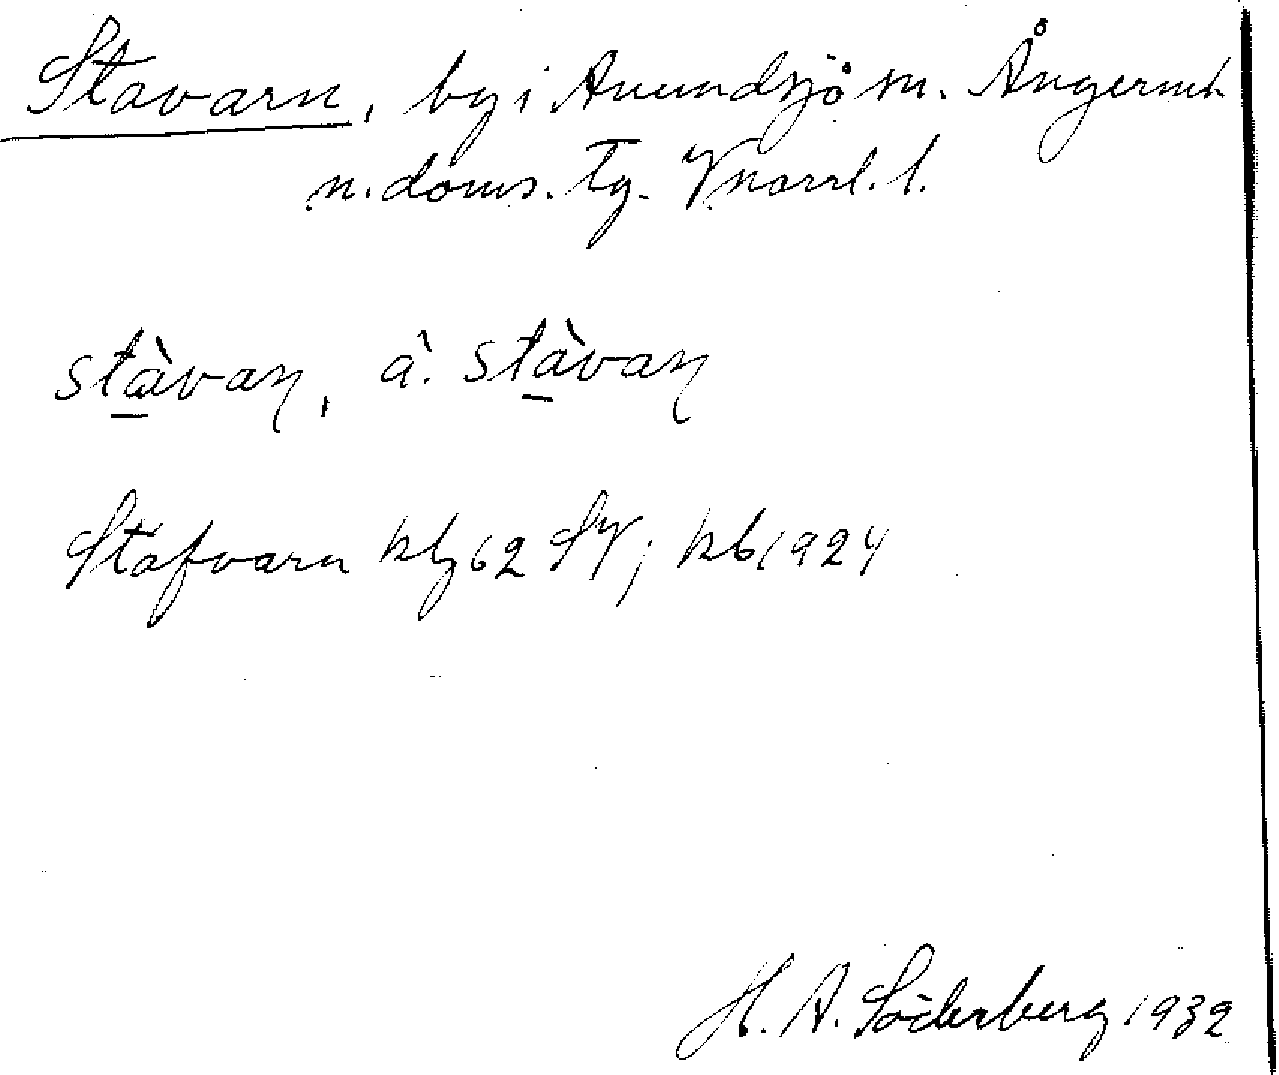 Stavarn, by i Anundsjö sn. Ångerml.
n. doms. Tg. Vnorrl. l.
stàvaɳ, à. stàvaɳ
Stafvarn kb; 1924
H. A. Söderberg 1932